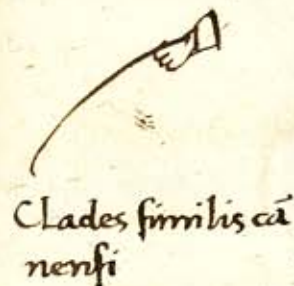 Clades similis cā
nensi